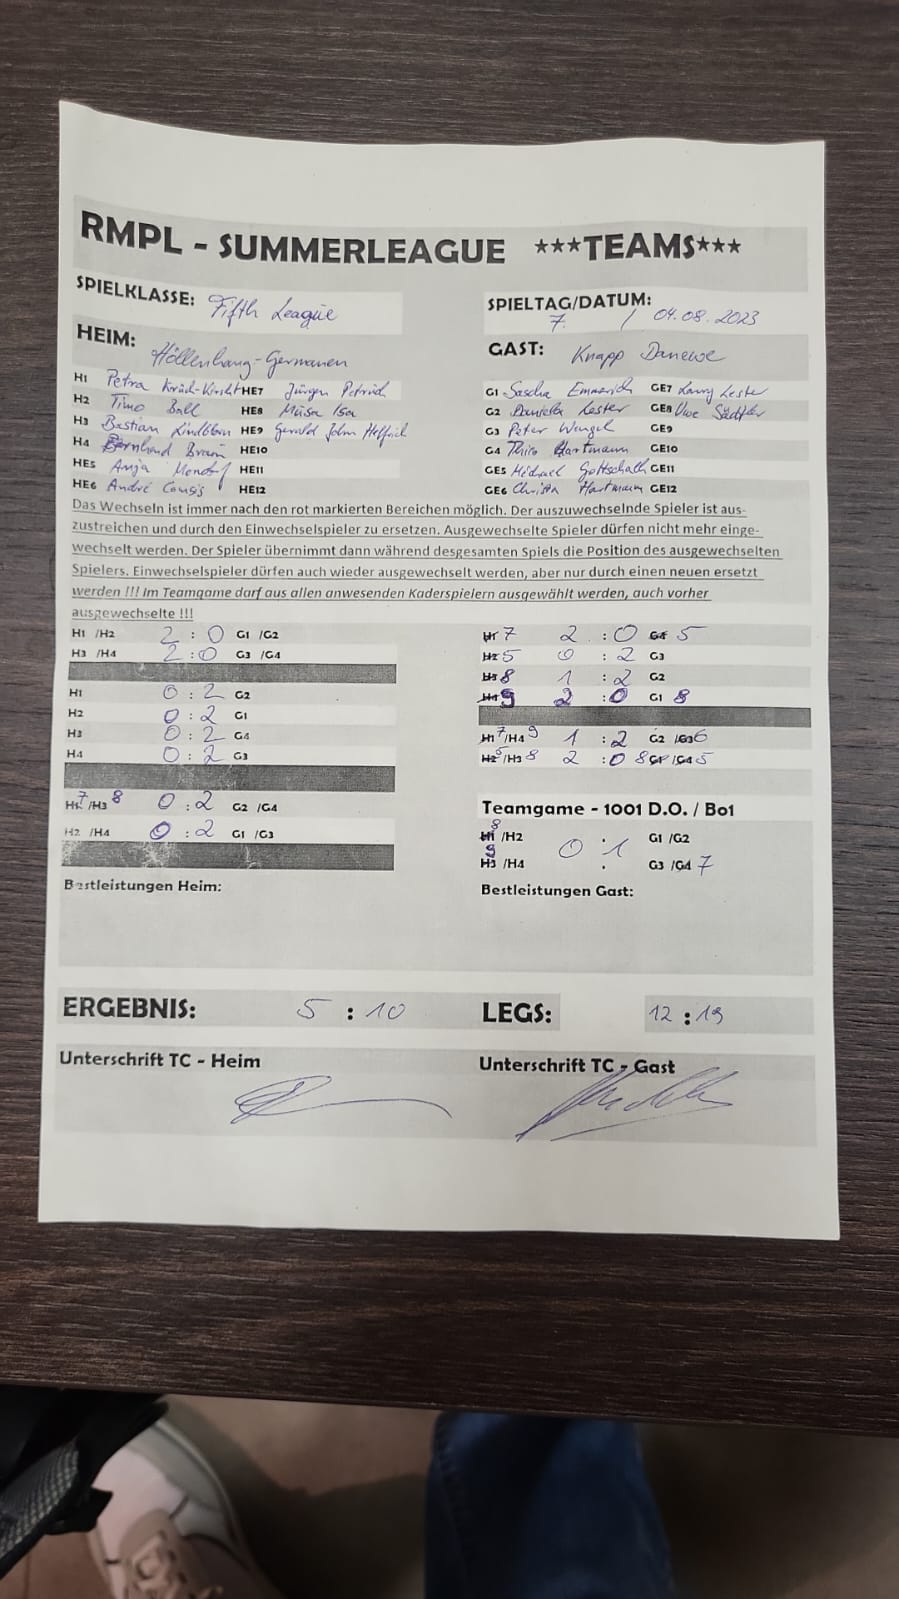 RMPL - SUMMERLEAGUE ***TEAMS***
SPIELKLASSE: Fifth League
SPIELTAG/DATUM: 7. / 04.08.2023
HEIM: Höllenhang-Germanen
GAST: Knapp Danewe
H1 Petra HE7 Jürgen
H2 Timo Ball HE8 Musa Isa
H3 Bastian Lindblom HE9 Gerald John Helfrich
H4 Bernhard Braun HE10
HE5 Anja HE11
HE6 André HE12
G1 Sascha Emmerich GE7 Larry Lester
G2 Daniela Lester GE8 Uwe Sädtler
G3 Peter Wengel GE9
G4 Thilo Hartmann GE10
GE5 Michael Gottschalk GE11
GE6 Christa Hartmann GE12
Das Wechseln ist immer nach den rot markierten Bereichen möglich. Der auszuwechselnde Spieler ist aus-
zustreichen und durch den Einwechselspieler zu ersetzen. Ausgewechselte Spieler dürfen nicht mehr einge-
wechselt werden. Der Spieler übernimmt dann während desgesamten Spiels die Position des ausgewechselten
Spielers. Einwechselspieler dürfen auch wieder ausgewechselt werden, aber nur durch einen neuen ersetzt
werden !!! Im Teamgame darf aus allen anwesenden Kaderspielern ausgewählt werden, auch vorher
ausgewechselte !!!
H1 /H2 2 : 0 G1 /G2
H3 /H4 2 : 0 G3 /G4
H1 0 : 2 G2
H2 0 : 2 G1
H3 0 : 2 G4
H4 0 : 2 G3
H1 7 /H3 8 0 : 2 G2 /G4
H2 /H4 0 : 2 G1 /G3
Bestleistungen Heim:
H1 7 2 : 0 G4 5
H2 5 0 : 2 G3
H3 8 1 : 2 G2
H4 9 2 : 0 G1 8
H1 7 /H4 9 1 : 2 G2 /G3 6
H2 5 /H3 8 2 : 0 8 G1 /G4 5
Teamgame - 1001 D.O. / Bo1
H1 8 /H2 G1 /G2
0 : 1
H3 9 /H4 G3 /G4 7
Bestleistungen Gast:
ERGEBNIS: 5 : 10
LEGS: 12 : 19
Unterschrift TC - Heim
Unterschrift TC - Gast